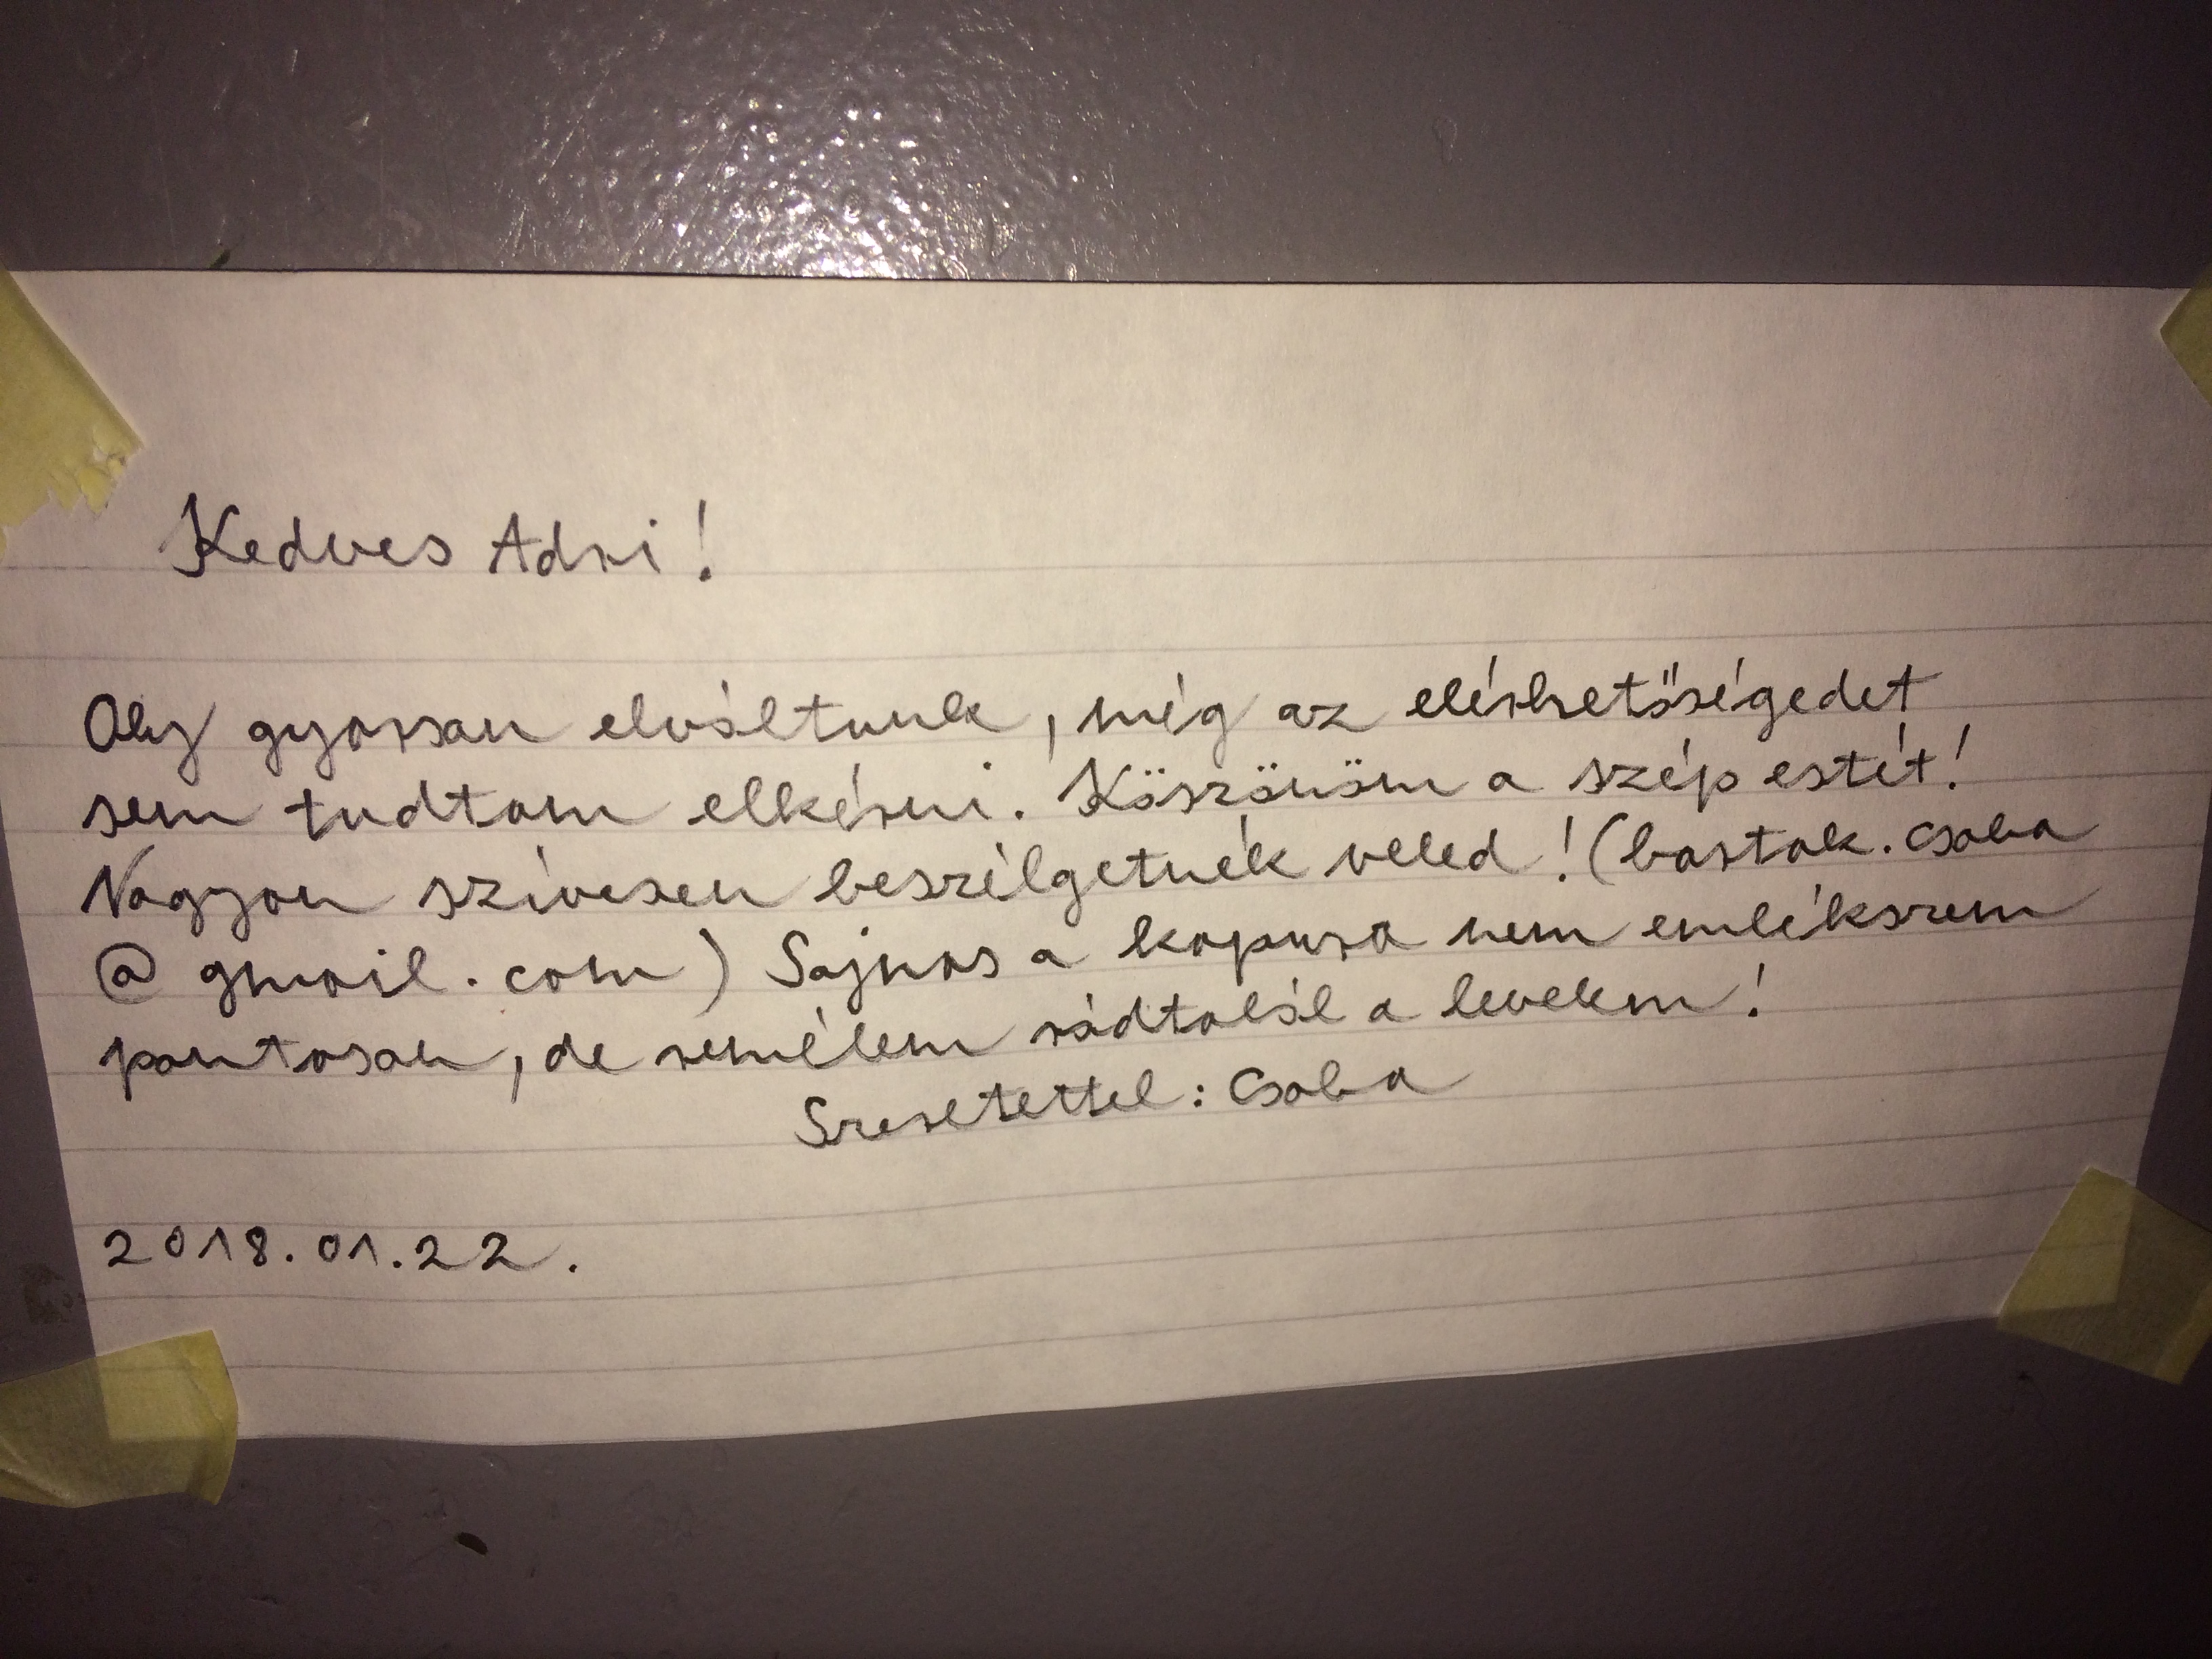 Kedves Adri!
Oly gyorsan elváltunk, még az elérhetőségedet
sem tudtam elkérni. Köszönöm a szép estét!
Nagyon szívesen beszélgetnék veled! (bartak.csaba
@gmail.com) Sajnos a kapura nem emlékszem
pontosan, de remélem rádtalál a levelem!
Szeretettel: Csaba
2018.01.22.